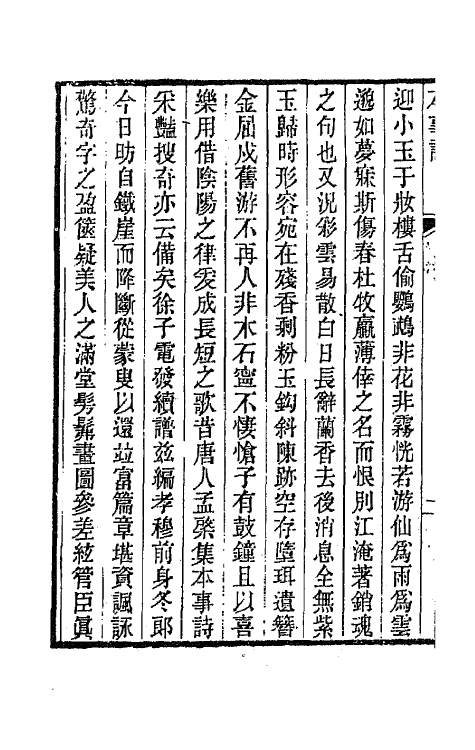 迎小玉于妝樓舌偷鸚鵡非花非霧恍若游仙爲雨爲雲
邈如夢寐斯傷春杜牧贏薄倖之名而恨別江淹著銷魂
之句也又況彩雲易散白日長辭蘭香去後消息全無紫
玉歸時形容宛在殘香剩粉玉鈎斜陳跡空存墮珥遺簪
金屈戍舊游不再人非木石寧不悽愴子有鼓鐘且以喜
樂用借陰陽之律爰成長短之歌昔唐人孟棨集本事詩
采豔搜奇亦云備矣徐子電發續譜茲編孝穆前身冬郎
今日昉自鐵崖而降斷從蒙叟以還竝富篇章堪資諷詠
驚奇字之盈篋疑美人之滿堂髣髴畫圖參差絃管臣眞